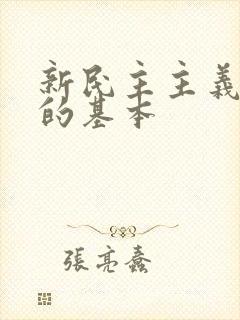 新民主主義
的基本
張亮蠢